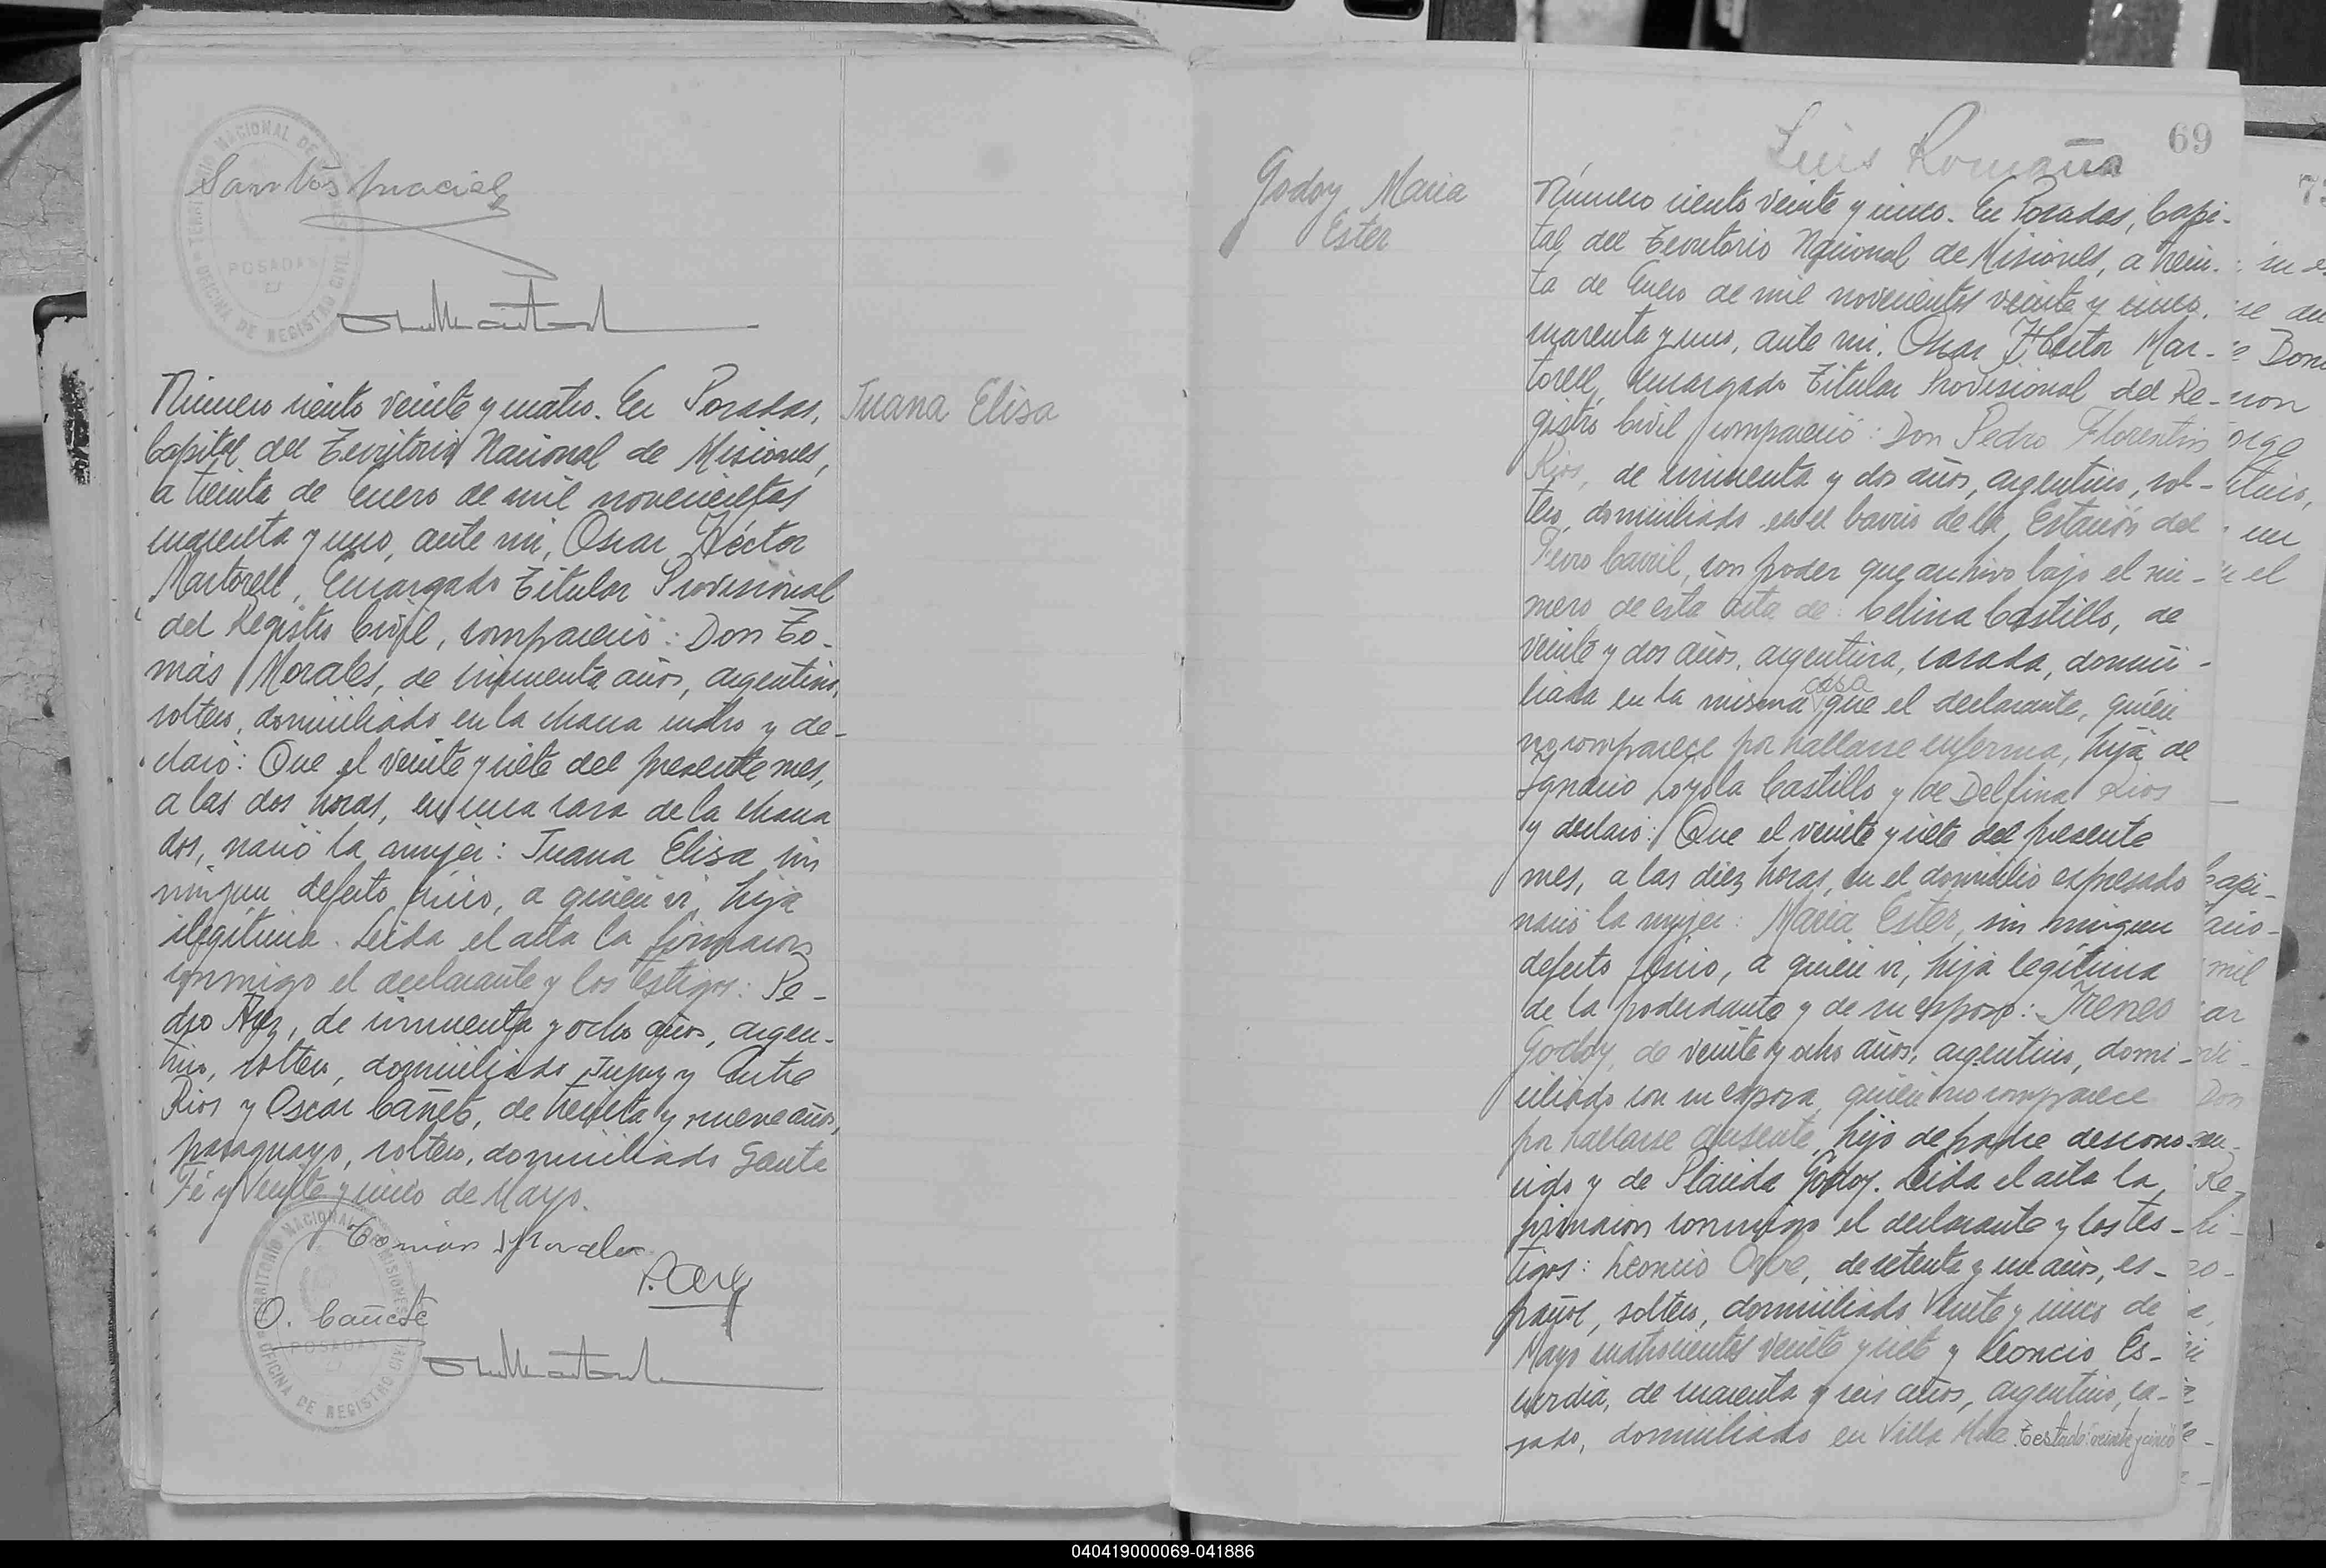 Santos Maciel
Número ciento veinte y cuatro. En Posadas,
Capital del Territorio Nacional de Misiones,
a treinta de Enero de mil novecientos
cuarenta y uno, ante mi, Oscar Héctor
Martorell, Encargado Titular Provisional
del Registro Civil, compareció: Don To-
más Morales, de cincuenta años, argentino,
soltero, domiciliado en la chacra cuatro y de-
claró: Que el veinte y siete del presente mes,
a las dos horas, en una casa de la chacra
dos, nació la mujer: Juana Elisa sin
ningun defecto fisico, a quien vi, hija
ilegítima. Leida el acta la firmaron
conmigo el declarante y los testigos: Pe-
dro Aez, de cincuenta y ocho años, argen-
tino, soltero, domiciliado Jujuy y Entre
Rios y Oscar Cañete, de treinta y nueve años,
paraguayo, soltero, domiciliado Santa
Fé y Veinte y cinco de Mayo.
Tomás Morales
O. Cañete
TERRITORIO NACIONAL DE MISIONES
POSADAS
OFICINA DE REGISTRO CIVIL
Juana Elisa
Godoy Maria
Ester
Luis Romaña
69
Número ciento veinte y cinco. En Posadas, Capi-
tal del Territorio Nacional de Misiones, a trein-
ta de Enero de mil novecientos veinte y cinco.
cuarenta y uno, ante mi, Oscar Héctor Mar-
torell, Encargado Titular Provisional del Re-
gistro Civil compareció: Don Pedro Florentin
Rios, de cincuenta y dos años, argentino, sol-
tero, domiciliado en el barrio de la Estación del
Ferro Carril, con poder que archivo bajo el nú-
mero de esta acta de: Celina Castillo, de
veinte y dos años, argentina, casada, domici-
liada en la misma casa que el declarante, quién
no comparece por hallarse enferma, hija de
Ignacio Loyola Castillo y de Delfina Rios
y declaró: Que el veinte y siete del presente
mes, a las diez horas, en el domicilio expresado
nació la mujer: Maria Ester, sin ningun
defecto fisico, a quien vi, hija legítima
de la poderdante y de su esposo: Ireneo
Godoy, de veinte y ocho años, argentino, domi-
ciliado con su esposa, quien no comparece
por hallarse ausente, hijo de padre descono-
cido y de Plácida Godoy. Leida el acta la
firmaron conmigo el declarante y los tes-
tigos: Leoncio Orbe, de setenta y un años, es-
pañol, soltero, domiciliado Veinte y cinco de
Mayo cuatrocientos veinte y siete y Leoncio Es-
curdia, de cuarenta y seis años, argentino, ca-
sado, domiciliado en Villa Testado: veinte y cinco
040419000069-041886